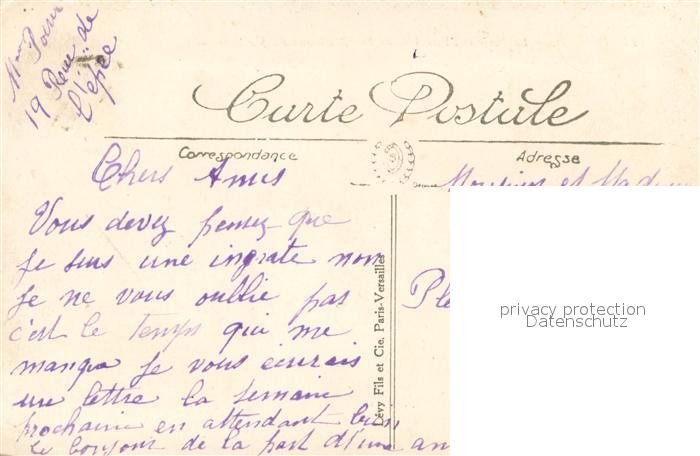 Mme
19 Rue de
l'épée
Carte Postale
Correspondance
Adresse
Chers Amis
Monsieur et Madame
Vous devez penser que
je suis une ingrate non
Je ne vous oublie pas
c'est le temps qui me
manque Je vous ecrirais
une lettre la semaine
prochaine en attendant bien
le bonjour de la part d'une am
Lévy Fils et Cie, Paris-Versailles
Ple
privacy protection
Datenschutz